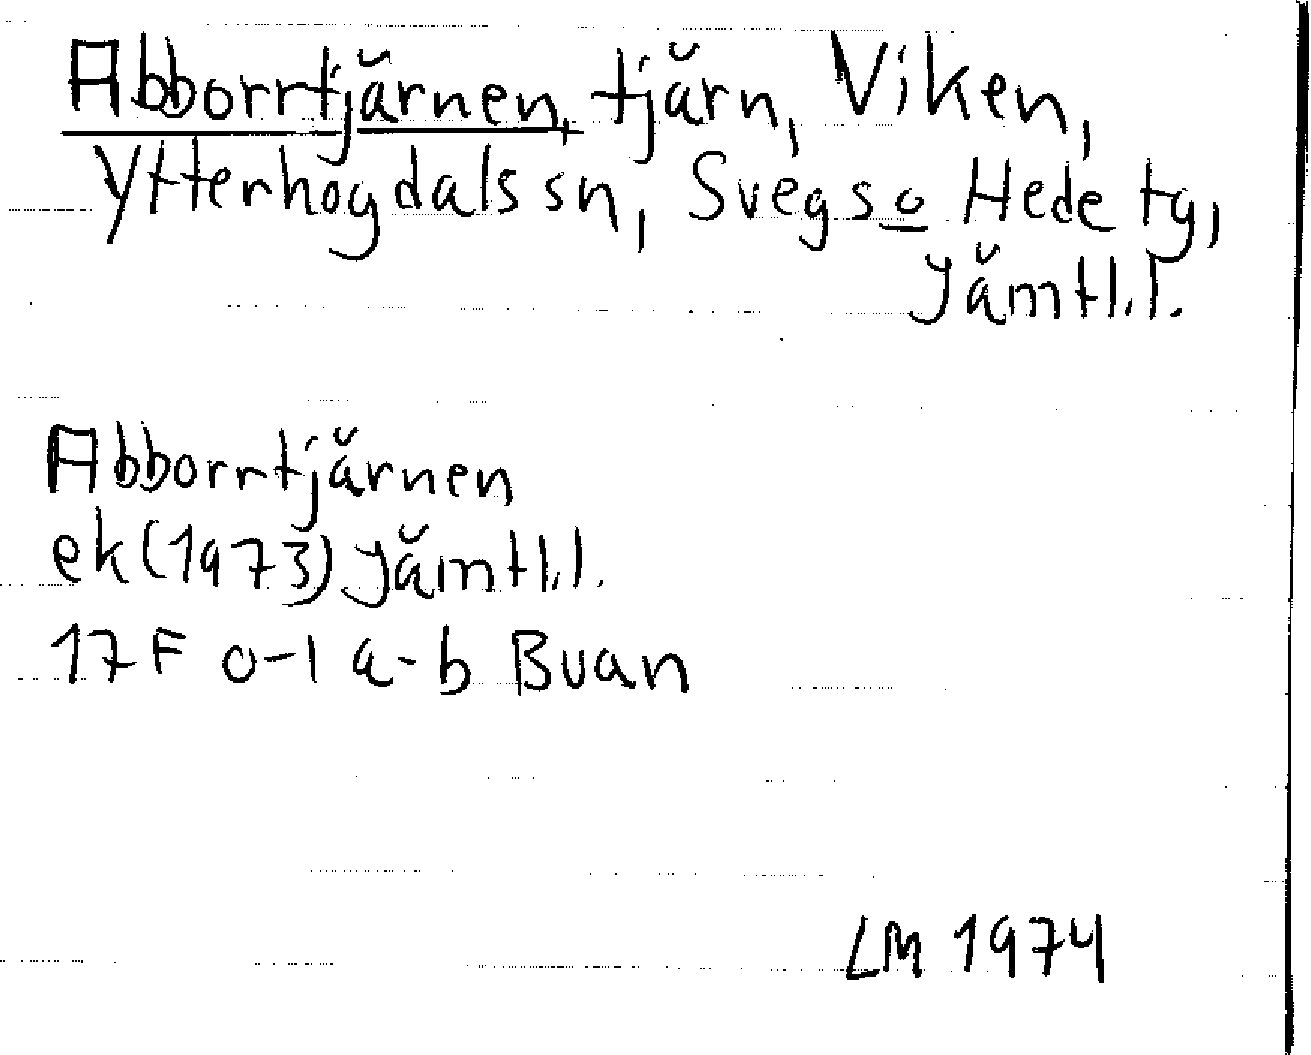 Abborrtjärnen, tjärn, Viken,
Ytterhogdals sn, Svegs o Hede tg,
Jämtl.l.
Abborrtjärnen
ek (1973) Jämtl.l.
17F 0-1 a-b Buan
LM 1974